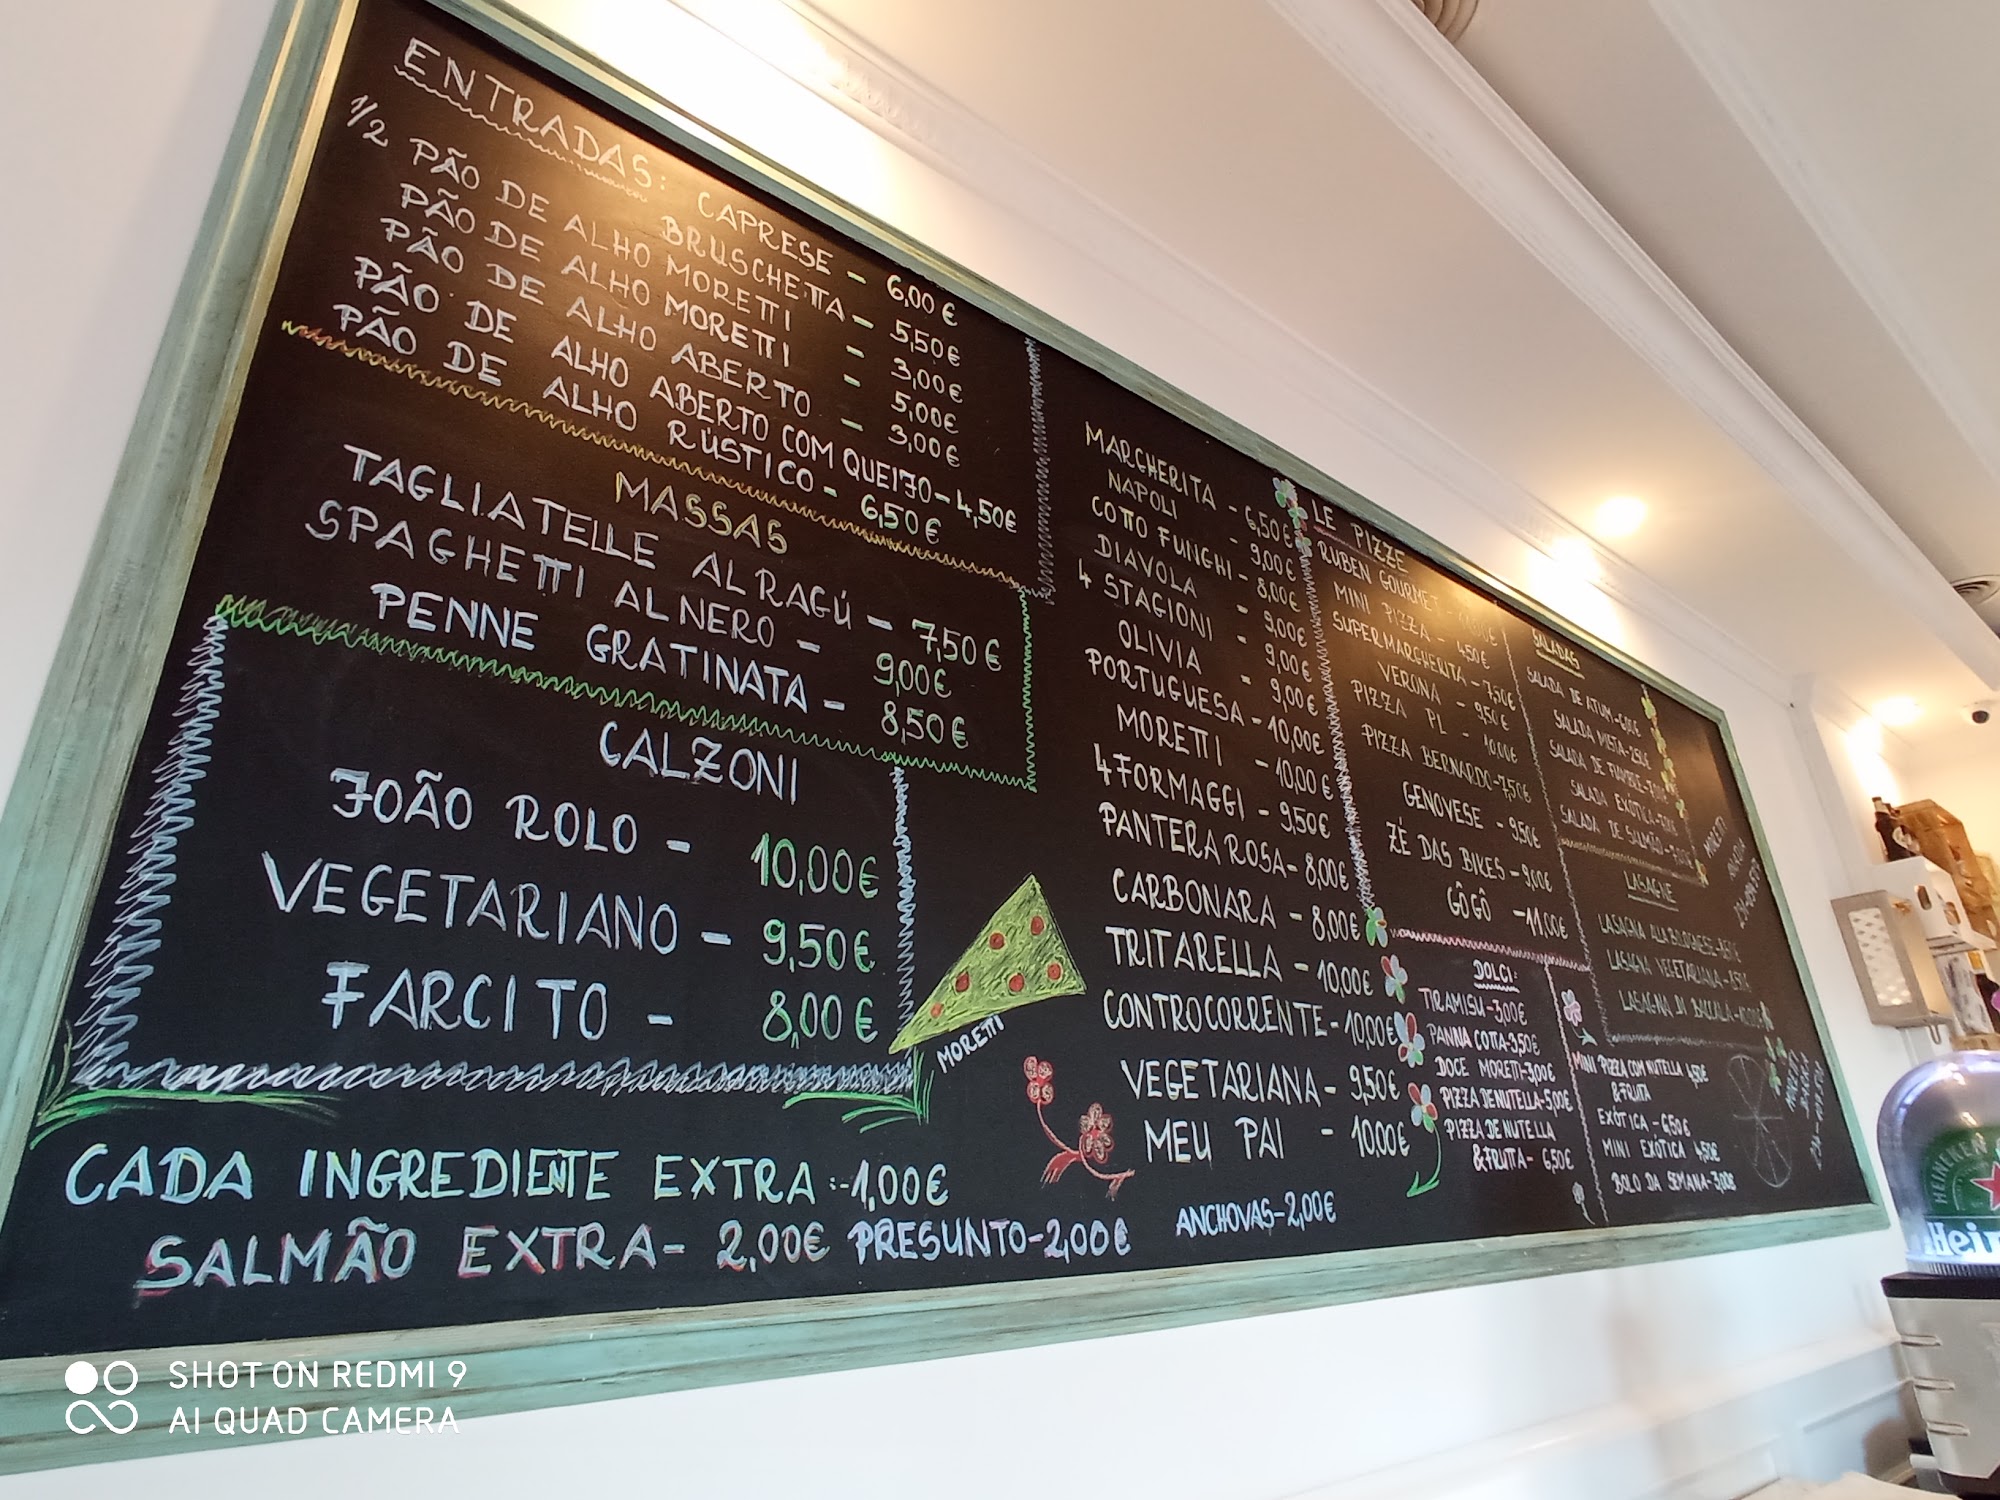 ENTRADAS: CAPRESE - 6,00 €
BRUSCHETTA - 5,50 €
1/2 PÃO DE ALHO MORETTI - 3,00 €
PÃO DE ALHO MORETTI - 5,00 €
PÃO DE ALHO ABERTO - 3,00 €
PÃO DE ALHO ABERTO COM QUEIJO - 4,50 €
PÃO DE ALHO RÚSTICO - 6,50 €
MASSAS
TAGLIATELLE AL RAGÚ - 7,50 €
SPAGHETTI AL NERO - 9,00 €
PENNE GRATINATA - 8,50 €
CALZONI
JOÃO ROLO - 10,00 €
VEGETARIANO - 9,50 €
FARCITO - 8,00 €
MORETTI
CADA INGREDIENTE EXTRA :- 1,00 €
SALMÃO EXTRA - 2,00 € PRESUNTO - 2,00 € ANCHOVAS - 2,00 €
LE PIZZE
MARGHERITA - 6,50 €
NAPOLI - 9,00 €
COTTO FUNGHI - 8,00 €
DIAVOLA - 9,00 €
4 STAGIONI - 9,00 €
OLIVIA - 9,00 €
PORTUGUESA - 10,00 €
MORETTI - 10,00 €
4 FORMAGGI - 9,50 €
PANTERA ROSA - 8,00 €
CARBONARA - 8,00 €
TRITARELLA - 10,00 €
CONTROCORRENTE - 10,00 €
VEGETARIANA - 9,50 €
MEU PAI - 10,00 €
RUBEN GOURMET
MINI PIZZA - 4,50 €
SUPERMARGHERITA - 7,50 €
VERONA - 9,50 €
PIZZA PL - 10,00 €
PIZZA BERNARDO - 7,50 €
GENOVESE - 9,50 €
ZÉ DAS BIKES - 9,00 €
GÔGÔ - 11,00 €
DOLCI:
TIRAMISU - 3,00 €
PANNA COTTA - 3,50 €
DOCE MORETTI - 3,00 €
PIZZA DE NUTELLA - 5,00 €
PIZZA DE NUTELLA
& FRUTTA - 6,50 €
SALADAS
SALADA DE ATUM - 6,00 €
SALADA MISTA - 2,50 €
SALADA DE FIAMBRE
SALADA EXÓTICA
SALADA DE SALMÃO
LASAGNE
LASAGNA ALLA BOLOGNESE
LASAGNA VEGETARIANA
LASAGNA DI BACCALA
MINI PIZZA COM NUTELLA 4,50 €
& FRUTA
EXÓTICA - 6,50 €
MINI EXÓTICA 4,50 €
BOLO DA SEMANA - 3,00 €
MORETTI
HEINEKEN
Hein
SHOT ON REDMI 9
AI QUAD CAMERA